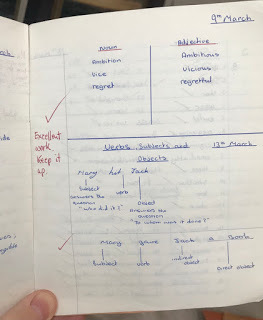 9th March
Noun Adjective
Ambition Ambitious
Vice Vicious
regret regretful
Excellent
work.
Keep it
up.
Verbs, Subjects and 13th March
Objects
Mary hit Jack
Subject verb Object
answers the
question
"who did it?"
Answers the
question
"To whom was it done?"
Mary gave Jack a Book
Subject verb indirect
object
Direct object